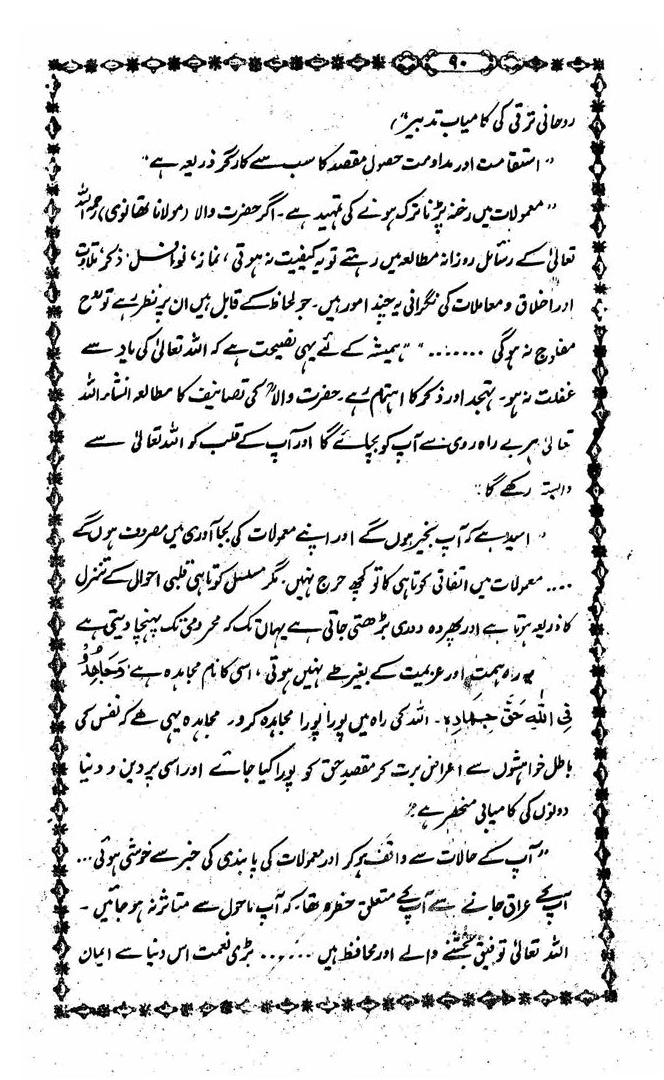 ۹۰
روحانی ترقی کی کامیاب تدبیر"،
"استقامت اور مداومت حصول مقصد کا سب سے کارگر ذریعہ ہے"
"معمولات میں رخنہ پڑنا ترک ہونے کی تمہید ہے۔ اگر حضرت والا (مولانا تھانوی) رحمہ اللہ
تعالیٰ کے رسائل روزانہ مطالعہ میں رہتے تو یہ کیفیت نہ ہوتی، نماز، نوافل، ذکر، تلاوت
اور اخلاق و معاملات کی نگرانی یہ چند امور ہیں۔ جو لحاظ کے قابل ہیں ان پر نظر رہے تو روح
مفلوج نہ ہوگی ........" "ہمیشہ کے لئے یہی نصیحت ہے کہ اللہ تعالیٰ کی یاد سے
غفلت نہ ہو۔ تہجد اور ذکر کا اہتمام رہے۔ حضرت والاؒ کی تصانیف کا مطالعہ انشاء اللہ
تعالیٰ ہر بے راہ روی سے آپ کو بچائے گا اور آپ کے قلب کو اللہ تعالیٰ سے
وابستہ رکھے گا"
"امید ہے کہ آپ بخیر ہوں گے اور اپنے معمولات کی بجا آوری میں مصروف ہوں گے
.... معمولات میں اتفاقی کوتاہی کا تو کچھ حرج نہیں۔ مگر مسلسل کوتاہی قلبی احوال کے تنزل
کا ذریعہ ہوتا ہے اور پھر وہ دوری بڑھتی جاتی ہے یہاں تک کہ محرومی تک پہنچا دیتی ہے
یہ راہ ہمت اور عزیمت کے بغیر طے نہیں ہوتی، اسی کا نام مجاہدہ ہے وَجَاهِدُوْا
فِی اللّٰهِ حَقَّ جِهَادِهٖ۔ اللہ کی راہ میں پورا پورا مجاہدہ کرو۔ مجاہدہ یہی ہے کہ نفس کی
باطل خواہشوں سے اعراض برت کر مقصدِ حق کو پورا کیا جائے اور اسی پر دین و دنیا
دونوں کی کامیابی منحصر ہے"
"آپ کے حالات سے واقف ہو کر اور معمولات کی پابندی کی خبر سے خوشی ہوئی...
آپ کے عراق جانے سے آپ کے متعلق خطرہ تھا کہ آپ ماحول سے متاثر نہ ہو جائیں۔
اللہ تعالیٰ توفیق بخشنے والے اور محافظ ہیں ....... بڑی نعمت اس دنیا سے ایمان